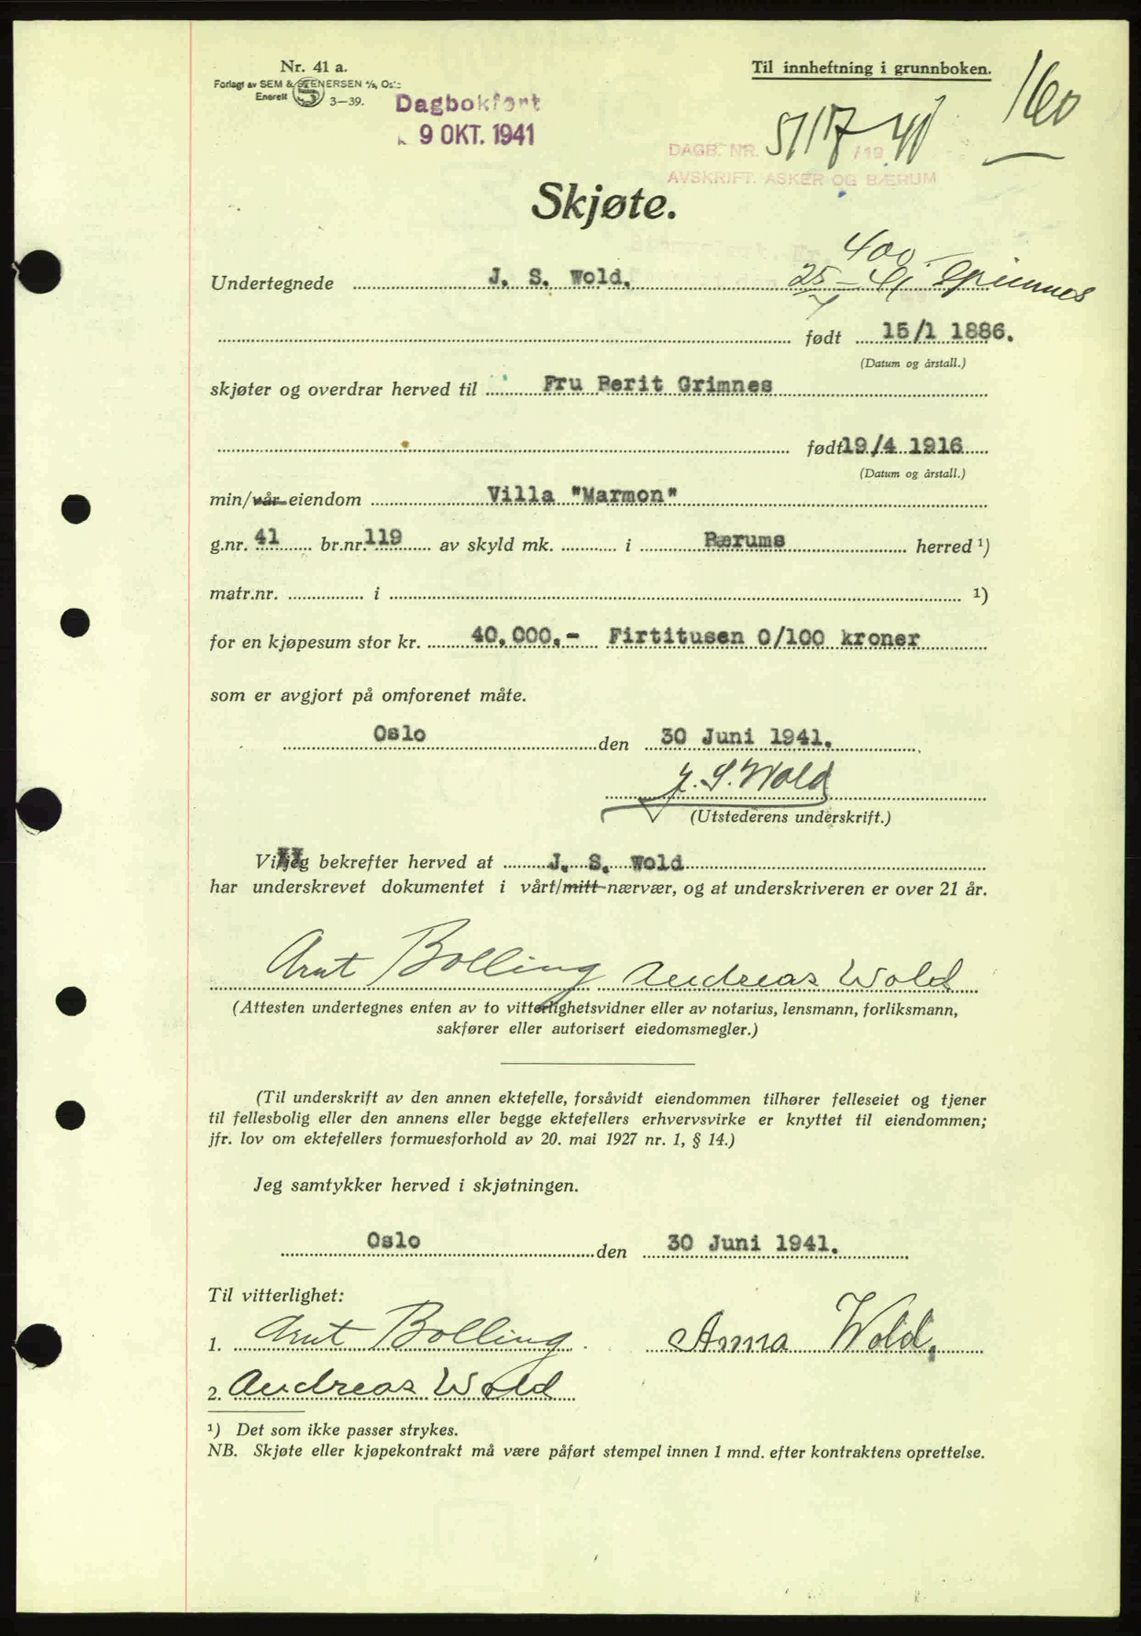 Nr. 41 a.
Forlagt av SEM & STENERSEN A/S, Oslo
Enerett 3—39.
Til innheftning i grunnboken.
160
Dagbokført
9 OKT. 1941
DAGB. NR. 5117 /19 41
AVSKRIFT. ASKER OG BÆRUM
Skjøte.
400.
Undertegnede J. S. Wold. 25/7 – 41 Grimnes
født 15/1 1886.
(Datum og årstall.)
skjøter og overdrar herved til Fru Berit Grimnes
født 19/4 1916
(Datum og årstall.)
min/vår eiendom Villa "Marmon"
g.nr. 41 br.nr. 119 av skyld mk. i Bærums herred ¹)
matr.nr. i ¹)
for en kjøpesum stor kr. 40.000.- Firtitusen 0/100 kroner
som er avgjort på omforenet måte.
Oslo den 30 Juni 1941.
J. S. Wold
(Utstederens underskrift.)
Vi/jeg bekrefter herved at J. S. Wold
har underskrevet dokumentet i vårt/mitt nærvær, og at underskriveren er over 21 år.
Arnt Bolling Andreas Wold
(Attesten undertegnes enten av to vitterlighetsvidner eller av notarius, lensmann, forliksmann,
sakfører eller autorisert eiedomsmegler.)
(Til underskrift av den annen ektefelle, forsåvidt eiendommen tilhører felleseiet og tjener
til fellesbolig eller den annens eller begge ektefellers erhvervsvirke er knyttet til eiendommen;
jfr. lov om ektefellers formuesforhold av 20. mai 1927 nr. 1, § 14.)
Jeg samtykker herved i skjøtningen.
Oslo den 30 Juni 1941.
Til vitterlighet:
1. Arnt Bolling Anna Wold.
2. Andreas Wold
¹) Det som ikke passer strykes.
NB. Skjøte eller kjøpekontrakt må være påført stempel innen 1 mnd. efter kontraktens oprettelse.